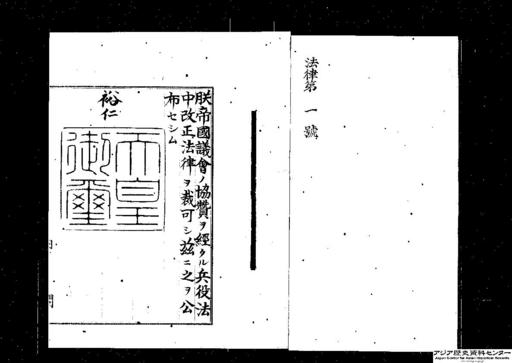 法律第一號
朕帝國議會ノ協贊ヲ經タル兵役法
中改正法律ヲ裁可シ茲ニ之ヲ公
布セシム
裕仁
天皇
御璽
アジア歴史資料センター
Japan Center for Asian Historical Records